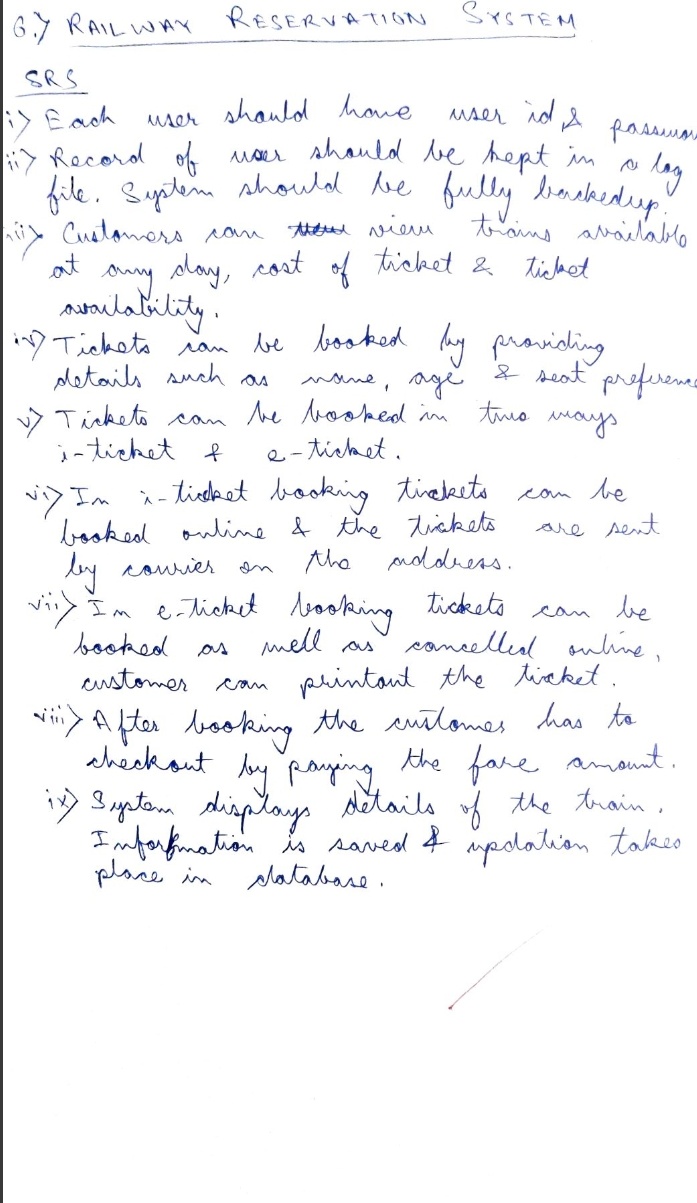 6.) RAILWAY RESERVATION SYSTEM
SRS
i) Each user should have user id &
ii) Record of user should be kept in a log
file. System should be fully backedup.
iii) Customers can view trains available
at any day, cost of ticket & ticket
availability.
iv) Tickets can be booked by providing
details such as name, age & seat preference
v) Tickets can be booked in two ways
i-ticket & e-ticket.
vi) In i-ticket booking tickets can be
booked online & the tickets are sent
by courier on the address.
vii) In e-ticket booking tickets can be
booked as well as cancelled online,
customer can printout the ticket.
viii) After booking the customer has to
checkout by paying the fare amount.
ix) System displays details of the train.
Information is saved & updation takes
place in database.